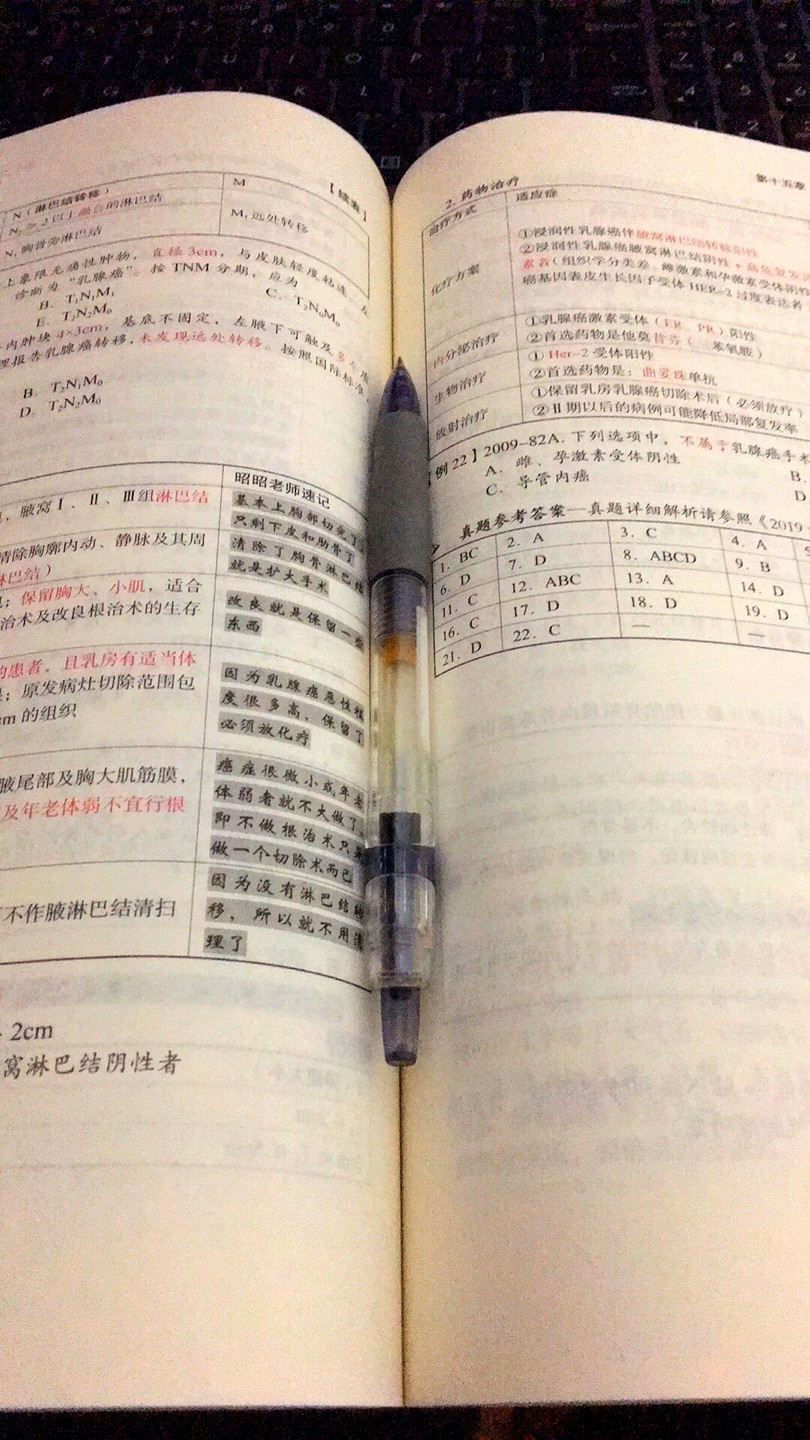 【续表】
N（淋巴结转移）
M
N₂≥2以上融合的淋巴结
N₃胸骨旁淋巴结
M₁远处转移
上象限无痛性肿物，直径3cm，与皮肤轻度粘连，左
诊断为“乳腺癌”。按TNM分期，应为
B. T₁N₁M₁
C. T₂N₀M₀
E. T₂N₂M₀
内肿块4×3cm，基底不固定，左腋下可触及多个
理报告乳腺癌转移，未发现远处转移。按照国际标准
B. T₂N₁M₀
D. T₂N₂M₀
昭昭老师速记
，腋窝Ⅰ、Ⅱ、Ⅲ组淋巴结
基本上胸部切完了
只剩下皮和肋骨了
清除胸廓内动、静脉及其周
淋巴结）
清除了胸骨淋巴结
就是扩大手术
；保留胸大、小肌，适合
治术及改良根治术的生存
改良就是保留一些
东西
的患者，且乳房有适当体
；原发病灶切除范围包
cm的组织
因为乳腺癌恶性程
度很多高，保留了
必须放化疗
腋尾部及胸大肌筋膜，
及年老体弱不宜行根
癌症很微小或年老
体弱者就不大做了，
即不做根治术只是
做一个切除术而已
不作腋淋巴结清扫
因为没有淋巴结转
移，所以就不用清
理了
2cm
窝淋巴结阴性者
第十五章
2. 药物治疗
治疗方式
适应症
化疗方案
①浸润性乳腺癌伴腋窝淋巴结转移阳性
②浸润性乳腺癌腋窝淋巴结阴性+高危复发
素者（组织学分类差、雌激素和孕激素受体阴性
癌基因表皮生长因子受体HER-2过度表达者
内分泌治疗
①乳腺癌激素受体（ER、PR）阳性
②首选药物是他莫昔芬（三苯氧胺）
生物治疗
①Her-2受体阳性
②首选药物是：曲妥珠单抗
放射治疗
①保留乳房乳腺癌切除术后（必须放疗）
②Ⅱ期以后的病例可能降低局部复发率
例22】2009-82A. 下列选项中，不属于乳腺癌手术
A. 雌、孕激素受体阴性
B.
C. 导管内癌
D
真题参考答案—真题详细解析请参照《2019
1. BC 2. A 3. C 4. A
6. D 7. D 8. ABCD 9. B
11. C 12. ABC 13. A 14. D
16. C 17. D 18. D 19. D
21. D 22. C — —